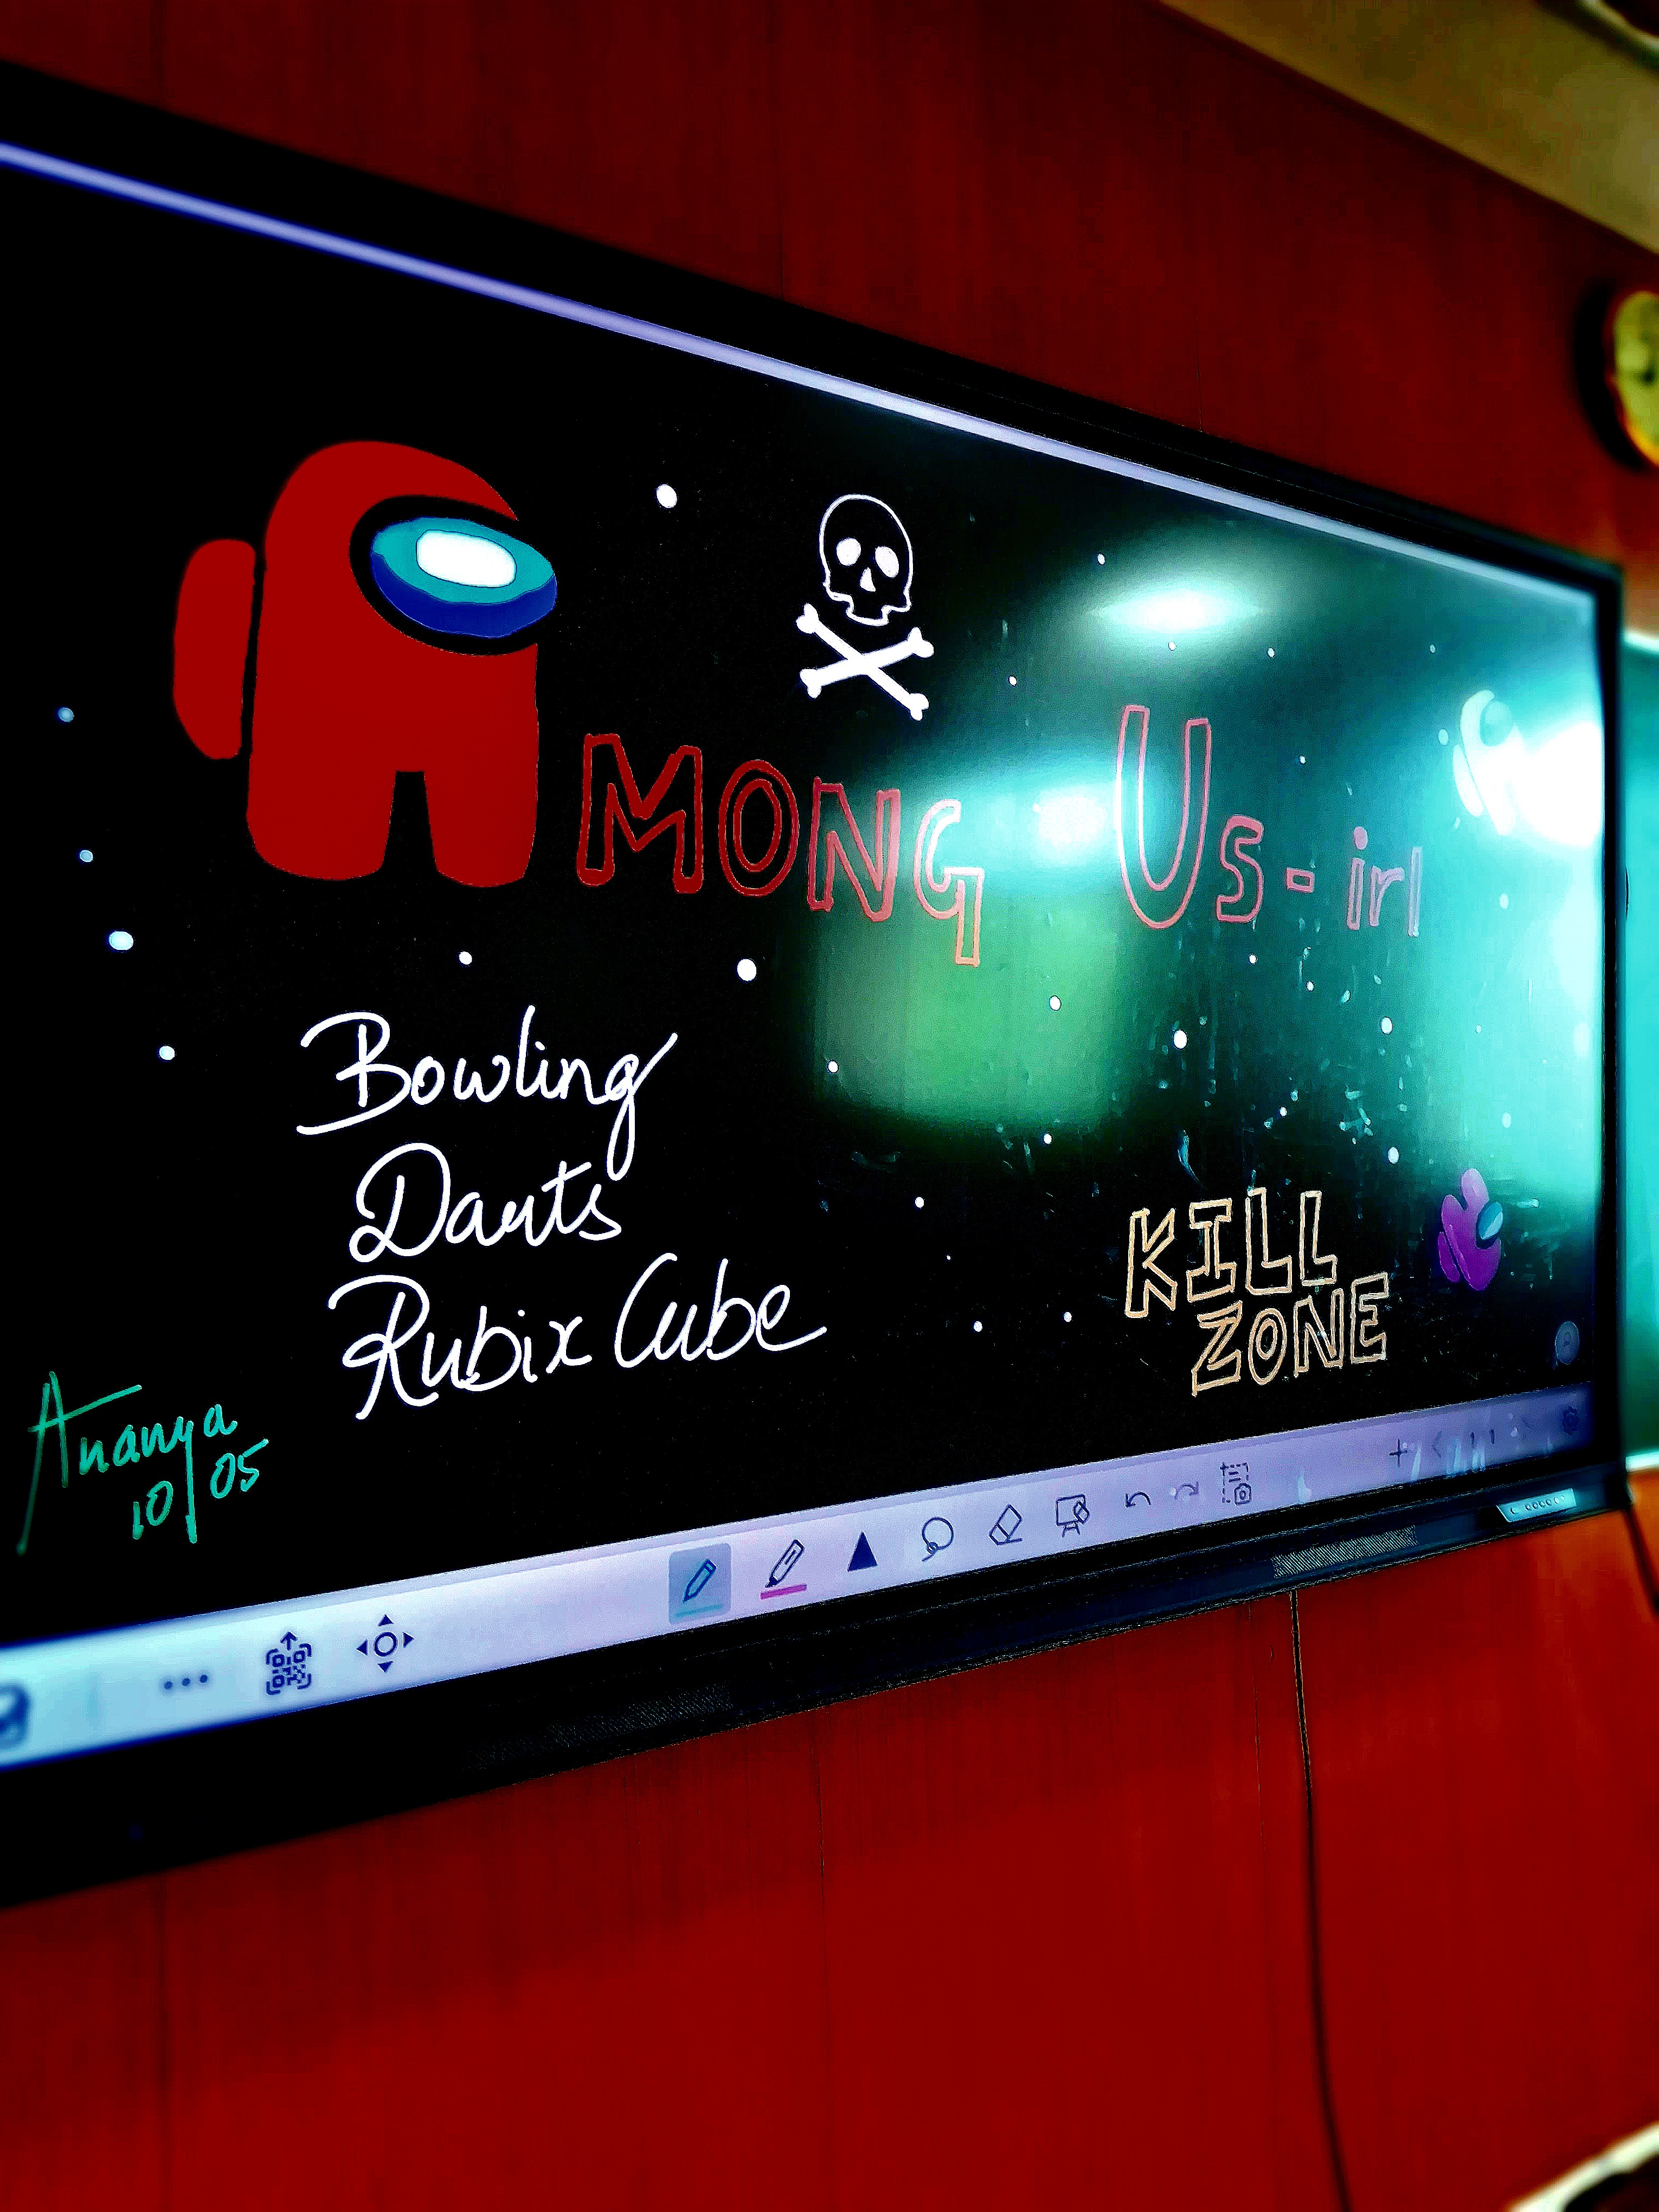 Among Us - irl
Bowling
Darts
Rubix Cube
KILL
ZONE
Ananya
10/05